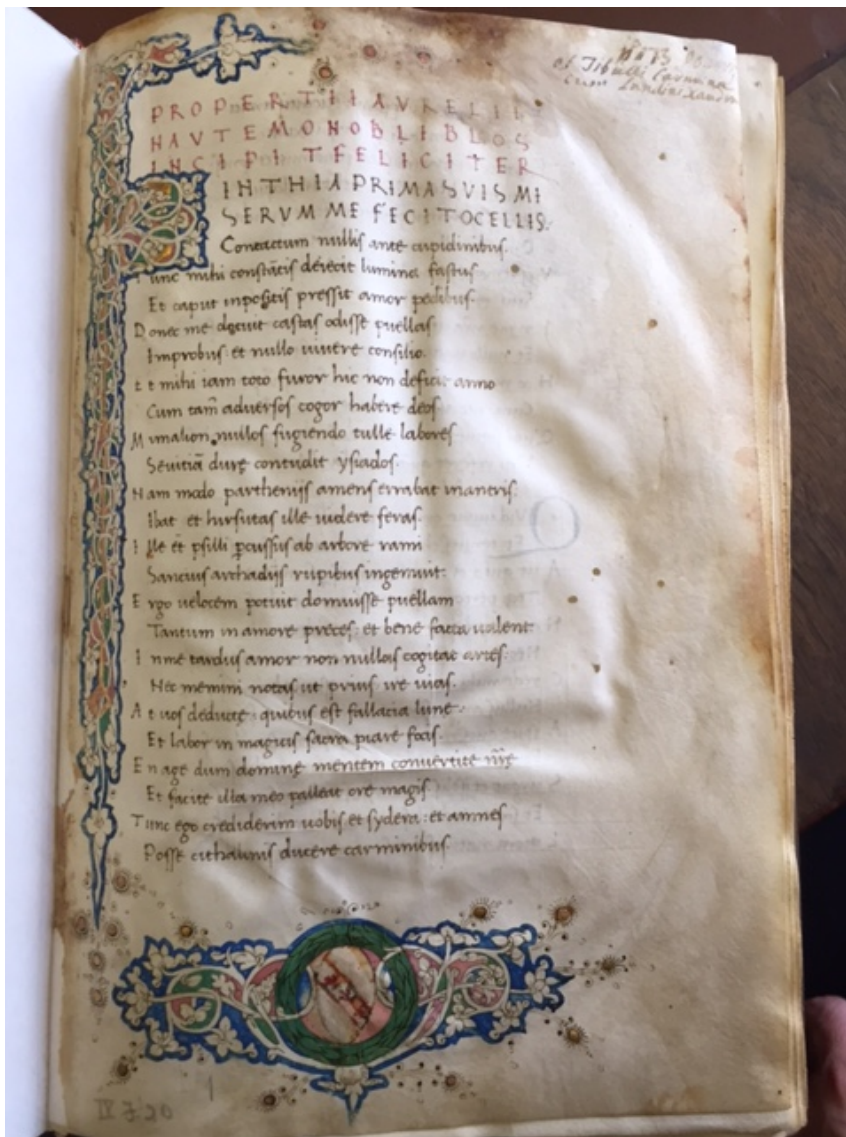 et Tibulli Carmina
Landini Xandra
PROPERTII AVRELII
NAVTE MONOBLIBLOS
INCIPIT FELICITER
CINTHIA PRIMA SVIS MI
SERVM ME FECIT OCELLIS.
Contactum nullis ante cupidinibus.
Tunc mihi constātis deiecit lumina fastus
Et caput inpositis pressit amor pedibus.
Donec me docuit castas odisse puellas
Improbus: et nullo uiuere consilio.
Et mihi iam toto furor hic non deficit anno
Cum tam̄ aduersos cogor habere deos
Mimalion nullos fugiendo tulle labores
Seuitiā durę contudit ysiados.
Nam modo partheniis amens errabat in antris:
Ibat et hirsutas ille uidere feras.
Ille et psilli ꝑcussus ab arbore rami
Saucius archadiis rupibus ingemuit.
Ergo uelocem potuit domuisse puellam
Tantum in amore preces: et bene facta ualent.
In me tardus amor non nullas cogitat artes.
Nec memini notas ut prius ire uias.
At uos deductę quibus est fallacia lunę
Et labor in magicis sacra piare focis.
En age dum dominę mentem conuertite nr̄ę
Et facite illa meo palleat ore magis
Tunc ego crediderim uobis et sydera: et amnes
Posse cithainis ducere carminibus
IV F 20
1